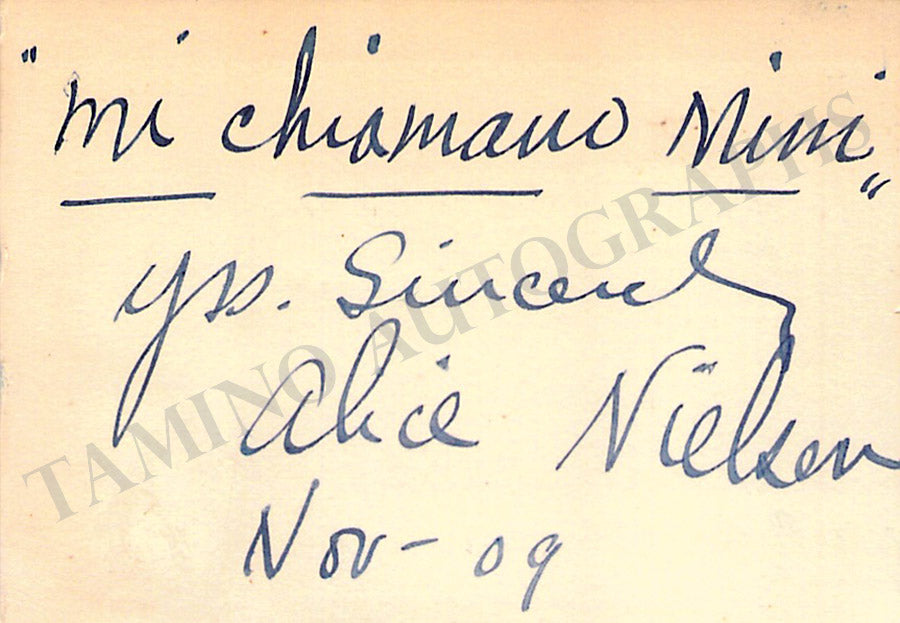 "Mi chiamano Mimi"
yrs. Sincerely
Alice Nielsen
Nov - 09
TAMINO AUTOGRAPHS